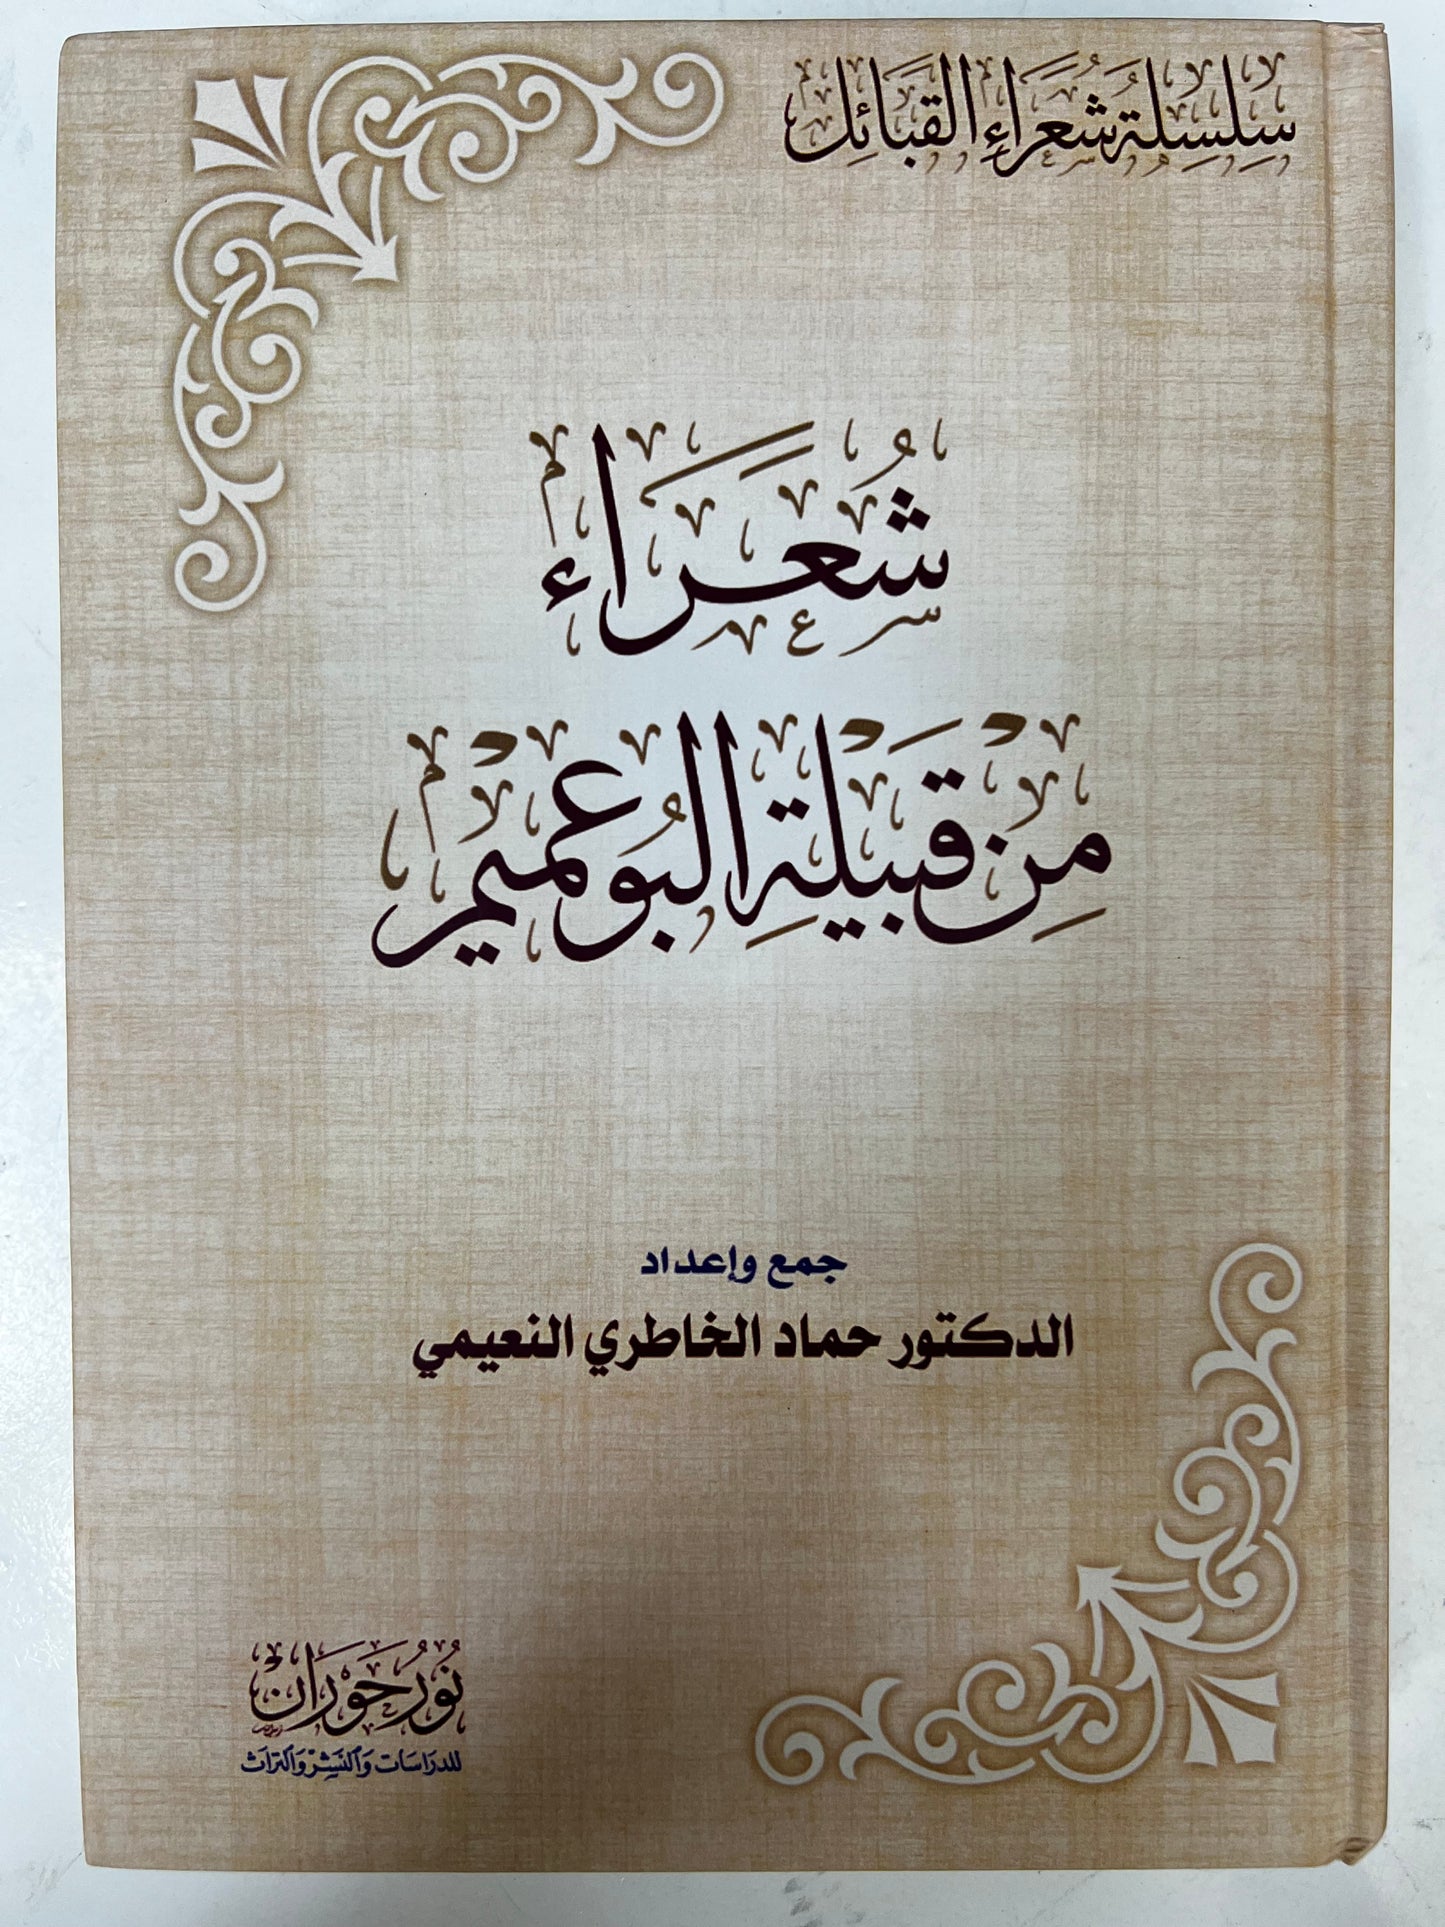 سِلسِلة شُعَراءِ القبَائِل
شُعَرَاء
مِنْ قَبيلةِ البُوعميْم
جمع وإعداد
الدكتور حماد الخاطري النعيمي
نُورُ حَوْرَانْ
للدراسَات وَالنَشِرْ وَالتراث